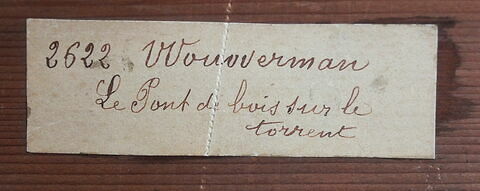 2622 Wouwerman
Le Pont de bois sur le
torrent